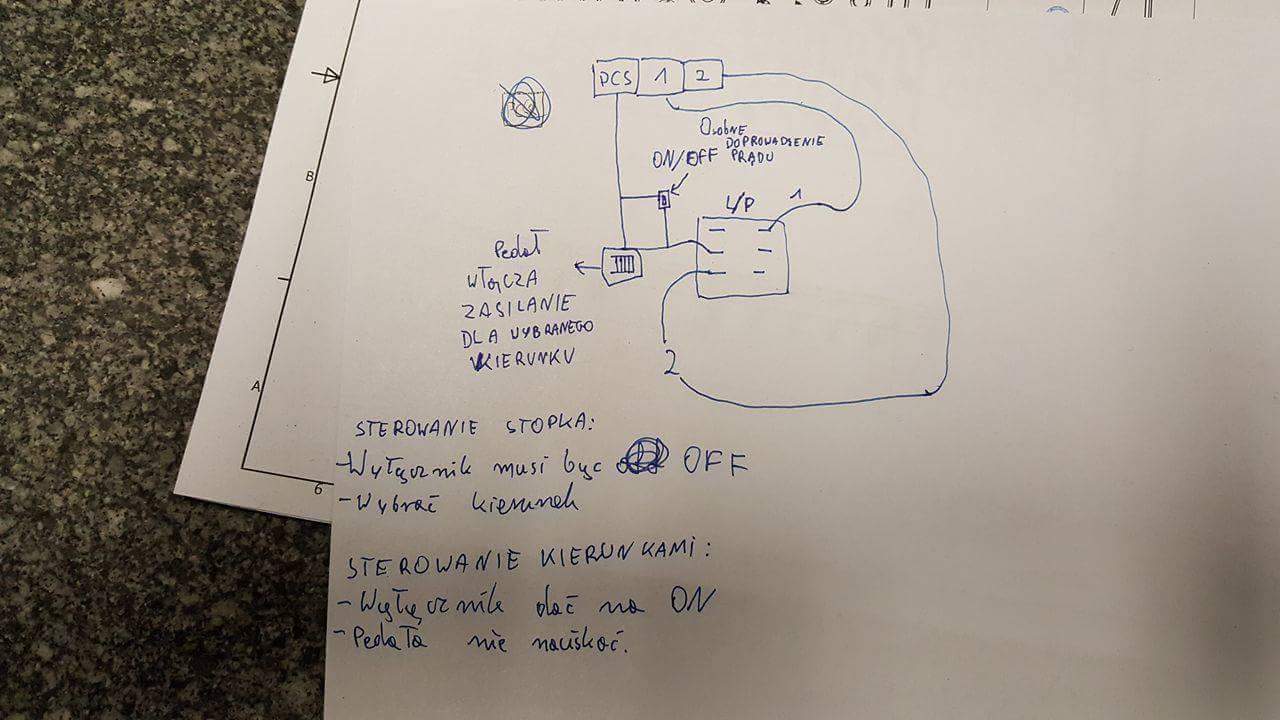 PCS 1 2
Osobne
DOPROWADZENIE
ON/OFF PRĄDU
L/P 1
Pedał
WŁĄCZA
ZASILANIE
DLA WYBRANEGO
KIERUNKU
2
STEROWANIE STOPKA:
-Wyłącznik musi być OFF
-Wybrać kierunek
STEROWANIE KIERUNKAMI:
-Wyłącznik dać na ON
-Pedała nie naciskać.
B
A
6